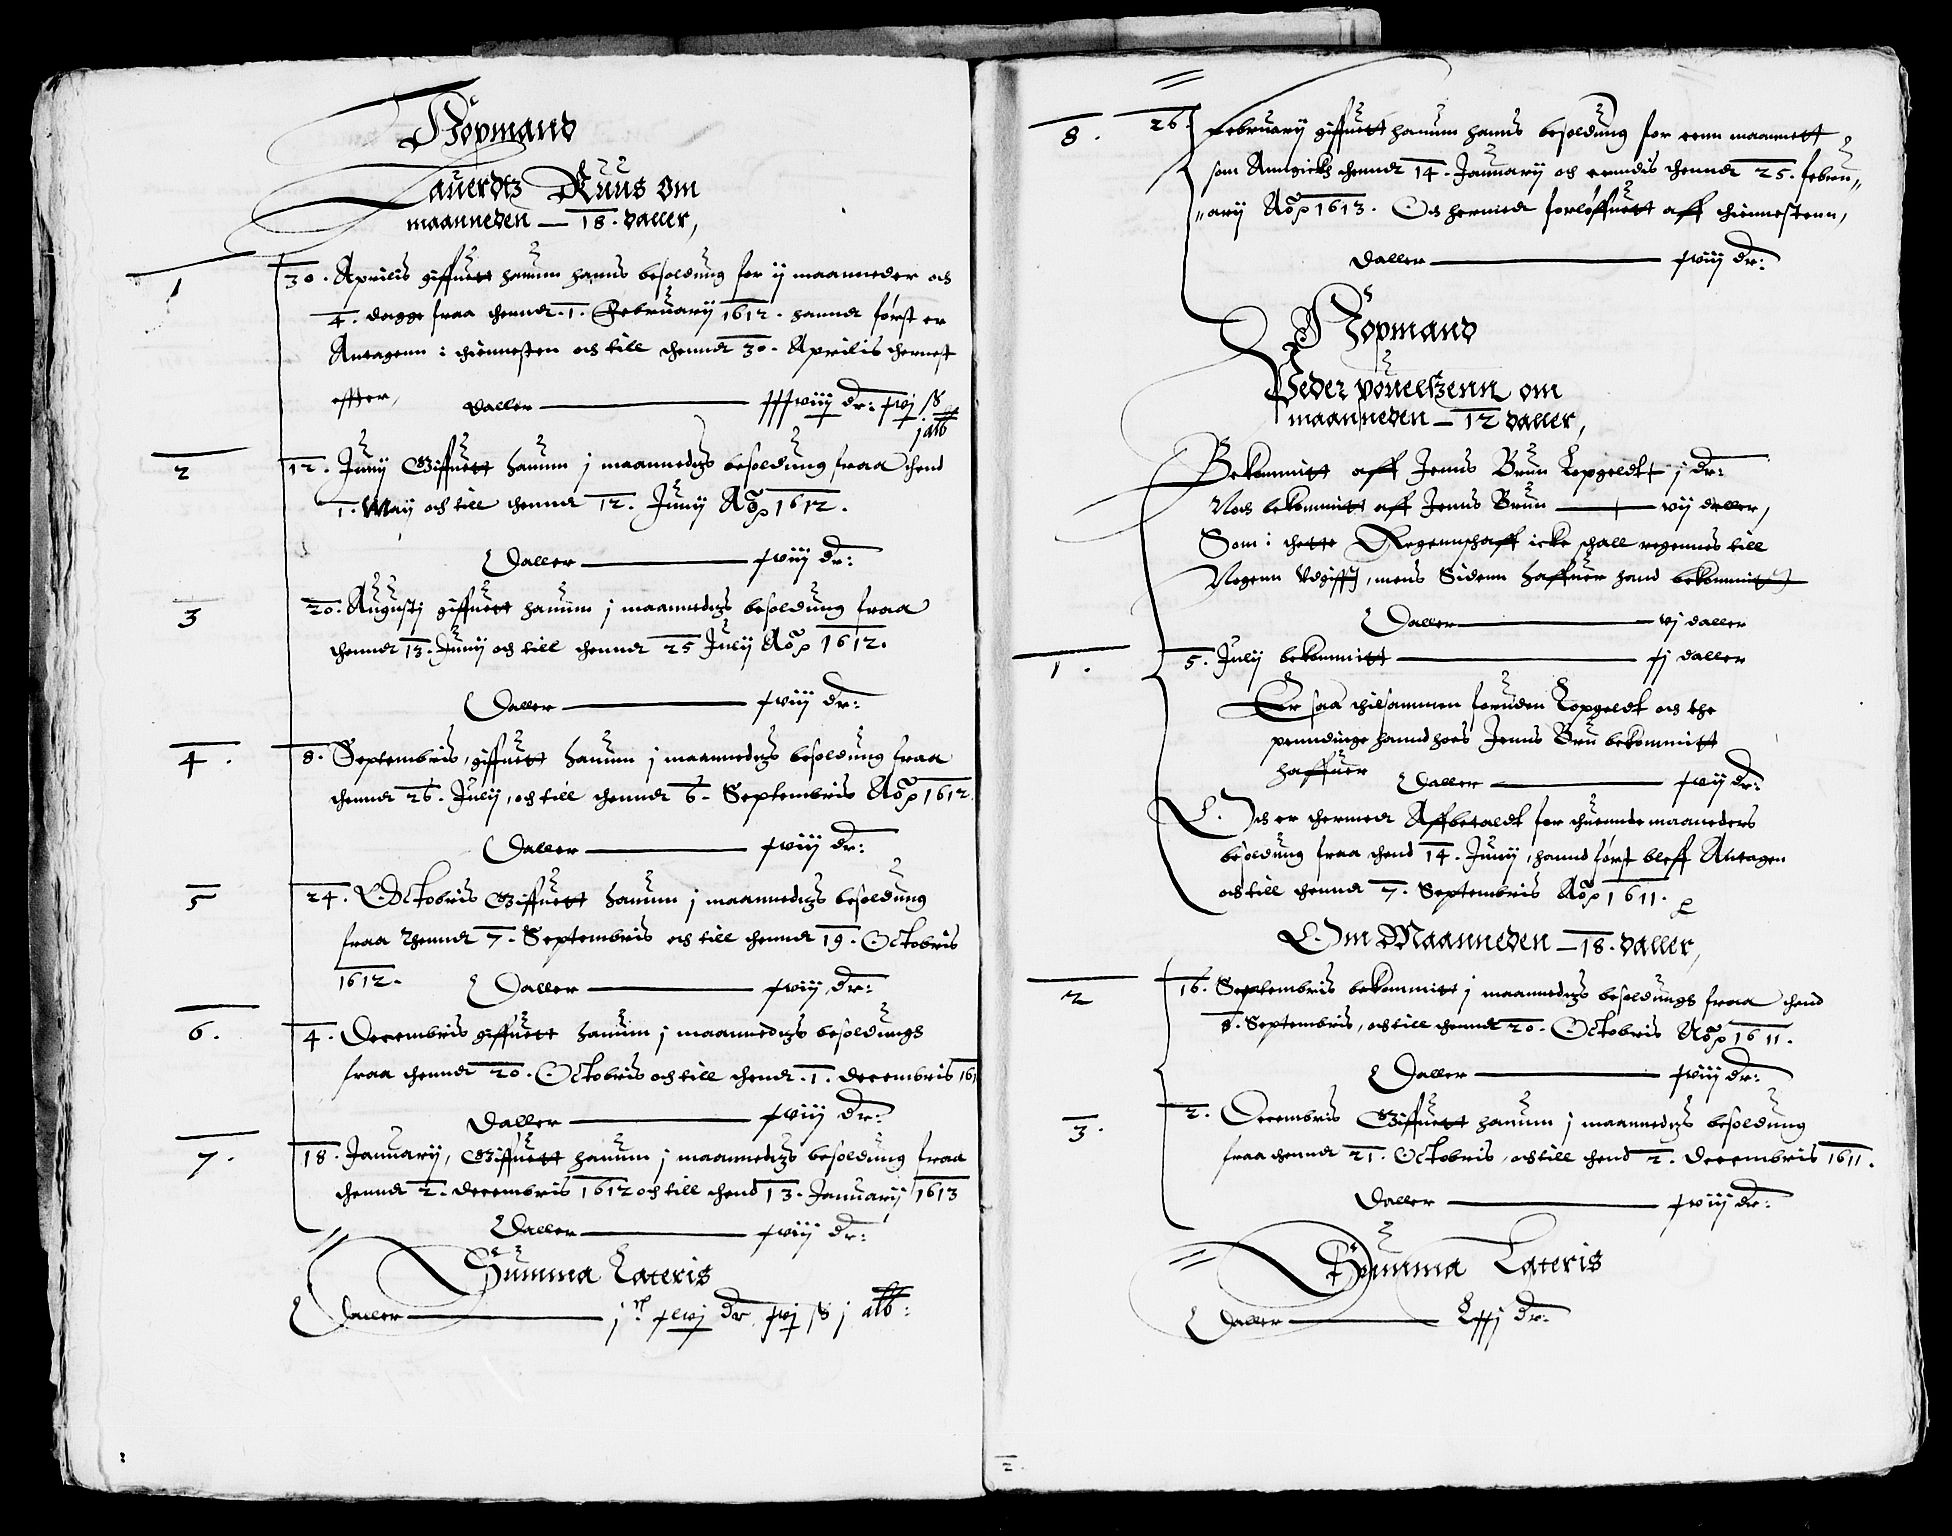 Høpmand
Lauerdtz Kuus om
maanneden — 18. daller,
1
30. Aprilis giffuett hanum hanns besoldung for ij maanneder och
4. dagge fraa thennd .1. February 1612. hannd først er
Antagenn i thiennesten och till thennd 30. Aprilis thernest
effter, daller — xxxviij dr: xvj ß
j alb
2
12. Juny Giffuett hanum j maannedtzs besoldung fraa thend
1. May och till thennd 12. Juny Aõ 1612.
Daller — xviij dr:
3
20. Augustj giffuett hanum j maannedtzs besoldung fraa
thennd 13. Juny och till thennd 25 July Aõ 1612.
Daller — xviij dr:
4.
8. Septembris, giffuett hanum j maannedtzs besoldung fraa
thennd 26. July, och till thennd 6. Septembris Aõ 1612.
Daller — xviij dr:
5
24. Octobris Giffuett hanum j maannedtzs besoldung
fraa thennd 7. Septembris och till thennd 19. Octobris
1612. Daller — xviij dr:
6.
4. Decembris giffuett hanum j maannedtzs besoldungs
fraa thennd 20. Octobris och till thend .1. Decembris 161
Daller — xviij dr:
7.
18. January, Giffuett hanum j maannedtzs besoldung fraa
thennd 2. Decembris 1612 och till thend 13. January 1613
Daller — xviij dr:
Summa Lateris
Daller — j c xlvj dr xvj ß j alb:
8.
26. February giffuett hanum hanns besoldung for eenn maannett
som Anngickh thennd 14. January och enndis thennd 25. febru„
„ary Aõ 1613. Och hermed forløffuett aff thiennestenn,
Daller — xviij dr:
Høpmand
Peder pouelszenn om
maanneden — 12 daller,
Bekommitt aff Jenns Brun Lopgeldt j dr:
Noch bekommitt aff Jenns Brun — vij daller,
Som i thette Regennschaff icke schall regennes till
Nogenn Vdgifft, mens Sidenn haffuer hand bekommitt
Daller — vj daller
1.
5. July bekommitt — xj daller
Er saa thilsammen foruden Lopgeldt och the
penndinge hannd hoes Jenns Bru bekommitt
haffuer Daller — xvij dr:
Och er thermed Affbetaldt for thuennde maaneders
besoldung fraa thend 14. Juny, hannd først bleff Antagen
och till thennd 7. Septembris Aõ 1611.
Om Maanneden — 18. daller,
2
16. Septembris bekommitt j maannedtzs besoldungs fraa thend
8. Septembris, och till thennd 20. Octobris Aõ 1611.
Daller — xviij dr:
3.
2. Decembris Giffuett hanum j maannedtzs besoldung
fraa thennd 21. Octobris, och till thend 2. Decembris 1611.
Daller — xviij dr:
Summa Lateris
Daller — Lxxj dr: